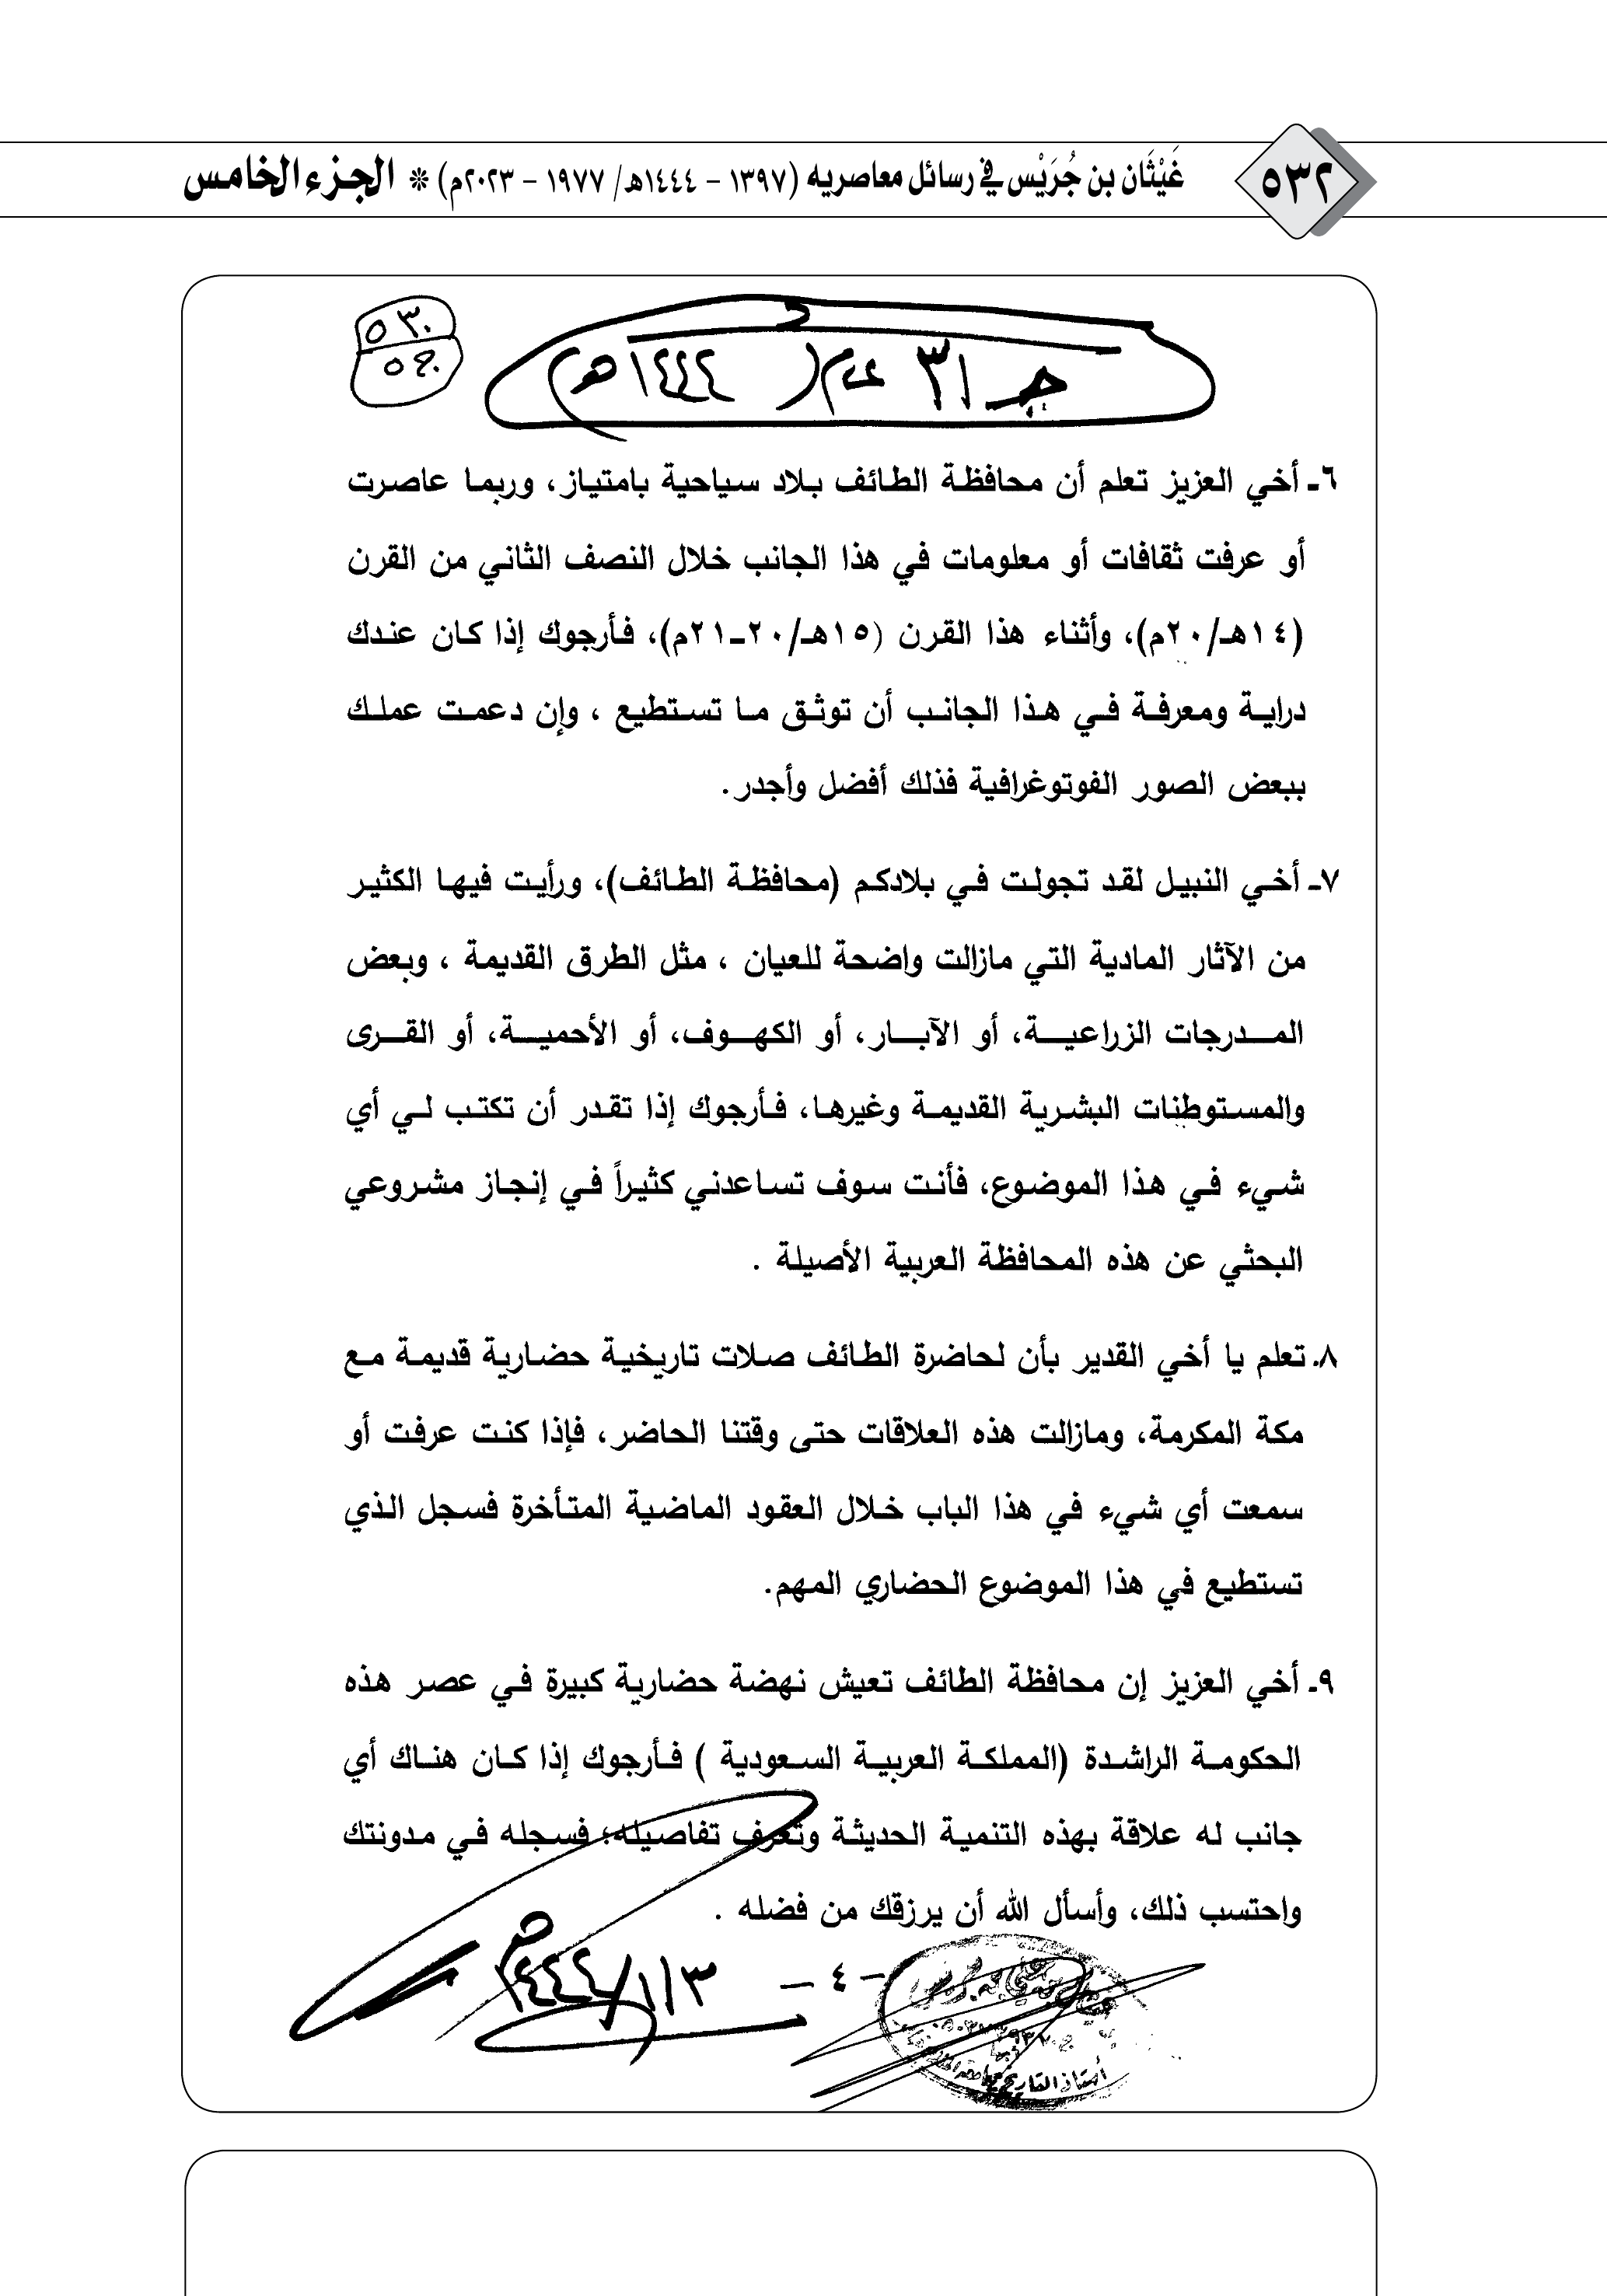 ٥٣٢
غَيْثَان بن جُرَيْس في رسائل معاصريه (١٣٩٧ - ١٤٤٤هـ/ ١٩٧٧ - ٢٠٢٣م) * الجزء الخامس
٥٣٠
٦ـ أخي العزيز تعلم أن محافظة الطائف بلاد سياحية بامتياز، وربما عاصرت
أو عرفت ثقافات أو معلومات في هذا الجانب خلال النصف الثاني من القرن
(١٤هـ/٢٠م)، وأثناء هذا القرن (١٥هـ/٢٠ـ٢١م)، فأرجوك إذا كان عندك
دراية ومعرفة في هذا الجانب أن توثق ما تستطيع ، وإن دعمت عملك
ببعض الصور الفوتوغرافية فذلك أفضل وأجدر.
٧ـ أخي النبيل لقد تجولت في بلادكم (محافظة الطائف)، ورأيت فيها الكثير
من الآثار المادية التي مازالت واضحة للعيان ، مثل الطرق القديمة ، وبعض
المدرجات الزراعية، أو الآبار، أو الكهوف، أو الأحمية، أو القرى
والمستوطنات البشرية القديمة وغيرها، فأرجوك إذا تقدر أن تكتب لي أي
شيء في هذا الموضوع، فأنت سوف تساعدني كثيراً في إنجاز مشروعي
البحثي عن هذه المحافظة العربية الأصيلة .
٨ـ تعلم يا أخي القدير بأن لحاضرة الطائف صلات تاريخية حضارية قديمة مع
مكة المكرمة، ومازالت هذه العلاقات حتى وقتنا الحاضر، فإذا كنت عرفت أو
سمعت أي شيء في هذا الباب خلال العقود الماضية المتأخرة فسجل الذي
تستطيع في هذا الموضوع الحضاري المهم.
٩ـ أخي العزيز إن محافظة الطائف تعيش نهضة حضارية كبيرة في عصر هذه
الحكومة الراشدة (المملكة العربية السعودية ) فأرجوك إذا كان هناك أي
جانب له علاقة بهذه التنمية الحديثة وتعرف تفاصيله؛ فسجله في مدونتك
واحتسب ذلك، وأسأل الله أن يرزقك من فضله .
- ٤ -
١٤٤٤/١/٣
أستاذ التاريخ